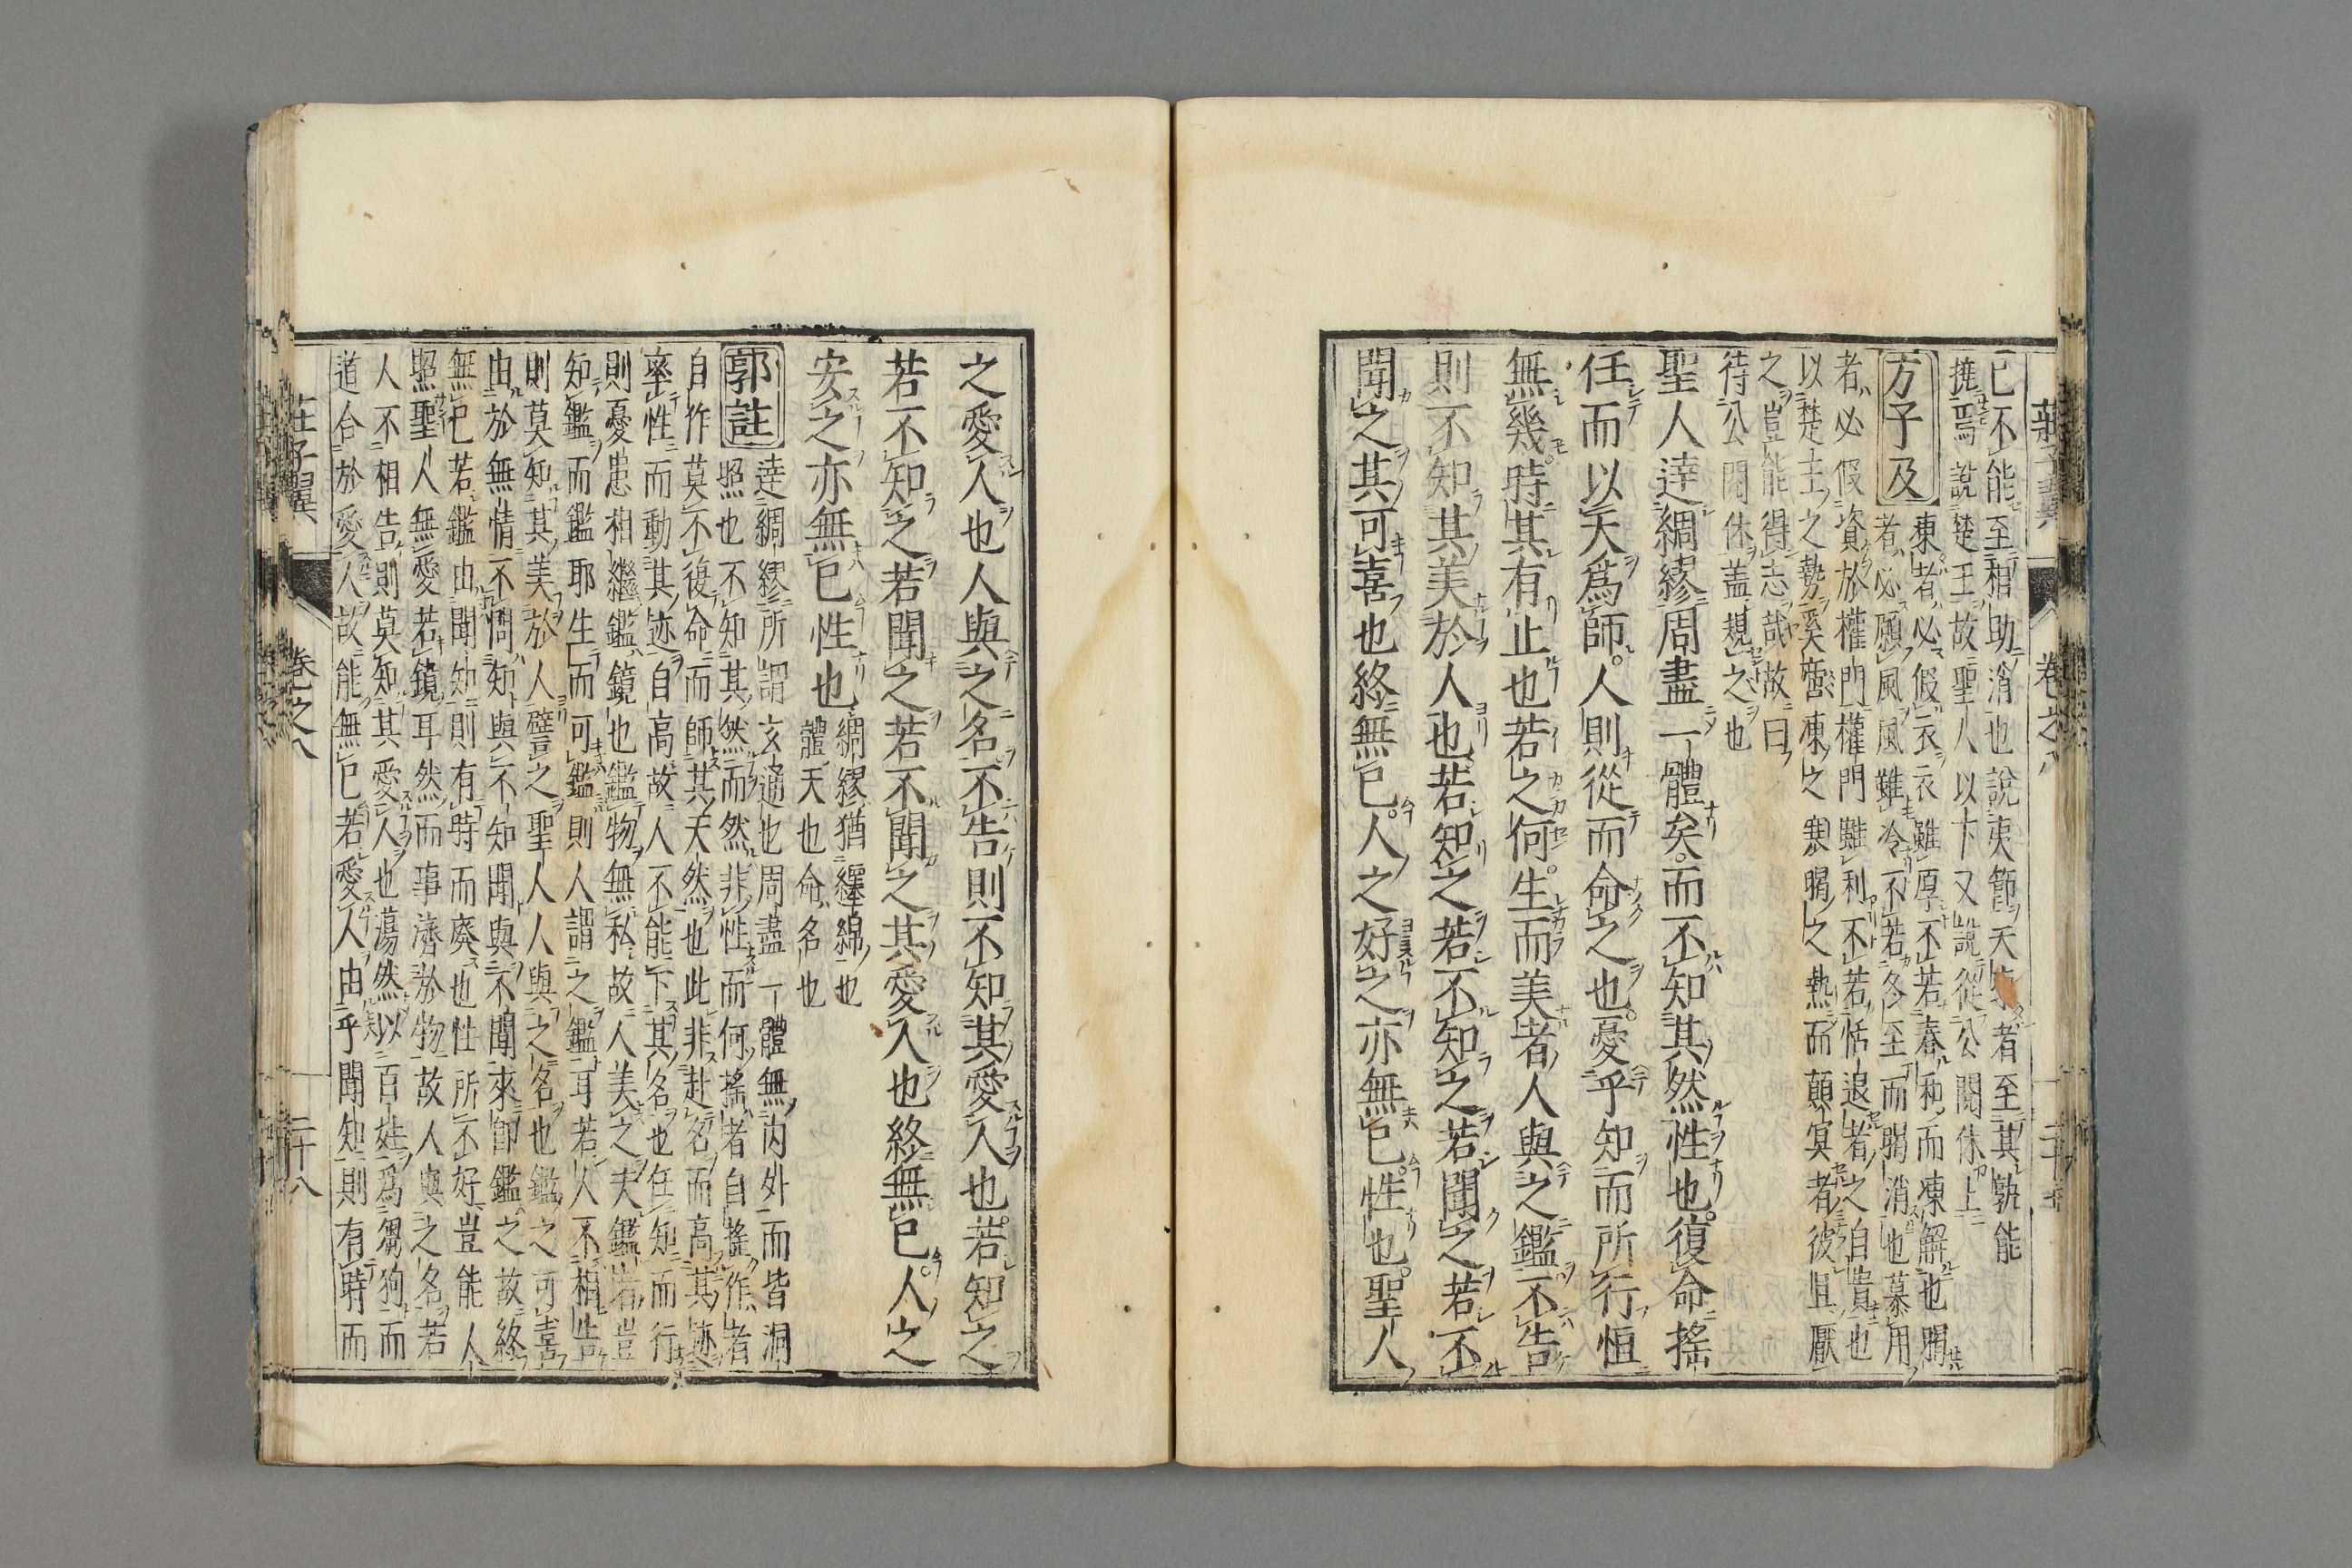 已不能至相助消也說夷節天
者至其孰能
撓焉說楚王故聖人以下又說從公閱休上
方子及
東者必假衣衣雖厚不若春和而凍解也暍
者必願風風雖冷不若冬至而暍消也慕用
者必假資於權門權門雖利不若恬退者之自貴也
以楚王之勢奚啻凍之裘暍之熱而顛冥者彼且厭
之豈能得志哉故曰
待公閱休蓋規之也
聖人達綢繆周盡一體矣而不知其然性也復命搖
任而以天爲師人則從而命之也憂乎知而所行恒
無幾時其有止也若之何生而美者人與之鑑不告
則不知其美於人也若知之若不知之若聞之若不
聞之其可喜也終無已人之好之亦無已性也聖人
之愛人也人與之名不告則不知其愛人也若知之
若不知之若聞之若不聞之其愛人也終無已人之
安之亦無已性也
綢繆猶纏綿也
體天也命名也
郭註
達綢繆所謂玄通也周盡一體無內外而皆洞
照也不知其然而然非性而何搖者自搖作者
自作莫不復命而師其天然也此非赴名而高其迹
率性而動其迹自高故人不能下其名也任知而行
則憂患相繼鑑鏡也鑑物無私故人美之夫鑑者豈
知鑑而鑑耶生而可鑑則人謂之鑑耳若人不相告
則莫知其美於人譬之聖人人與之名也鑑之可喜
由於無情不問知與不知聞與不聞來即鑑之故終
無已若鑑由聞知則有時而廢也性所不好豈能人
照聖人無愛若鏡耳然而事濟於物故人與之名若
人不相告則莫知其愛人也蕩然以百姓爲芻狗而
道合於愛人故能無已若愛人由乎聞知則有時而
莊子翼
卷之八
二十八